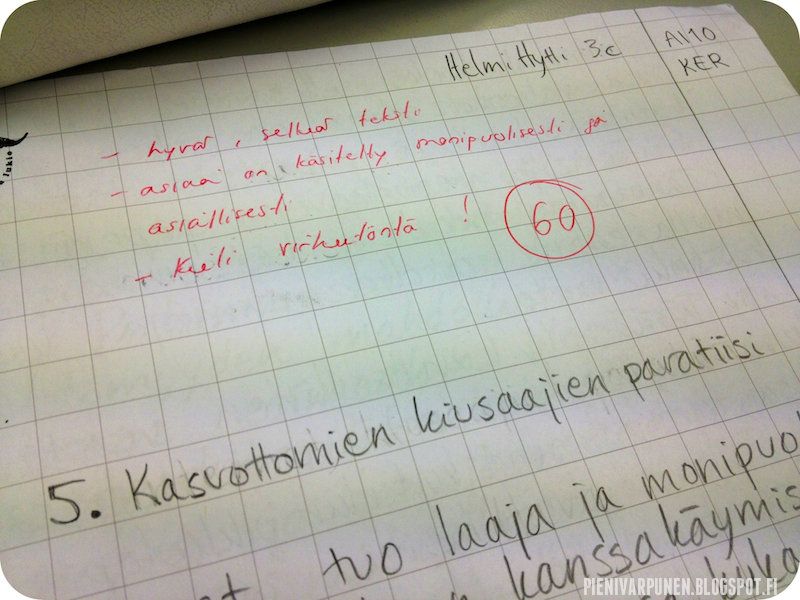 Helmi Hytti 3c
ÄI10
KER
Lukio
- hyvä, selkeä teksti
- asiaa on käsitelty monipuolisesti ja
asiallisesti
- kieli virheetöntä !
60
5. Kasvottomien kiusaajien paratiisi
tuo laaja ja monipuo
kanssakäymis
PIENIVARPUNEN.BLOGSPOT.FI